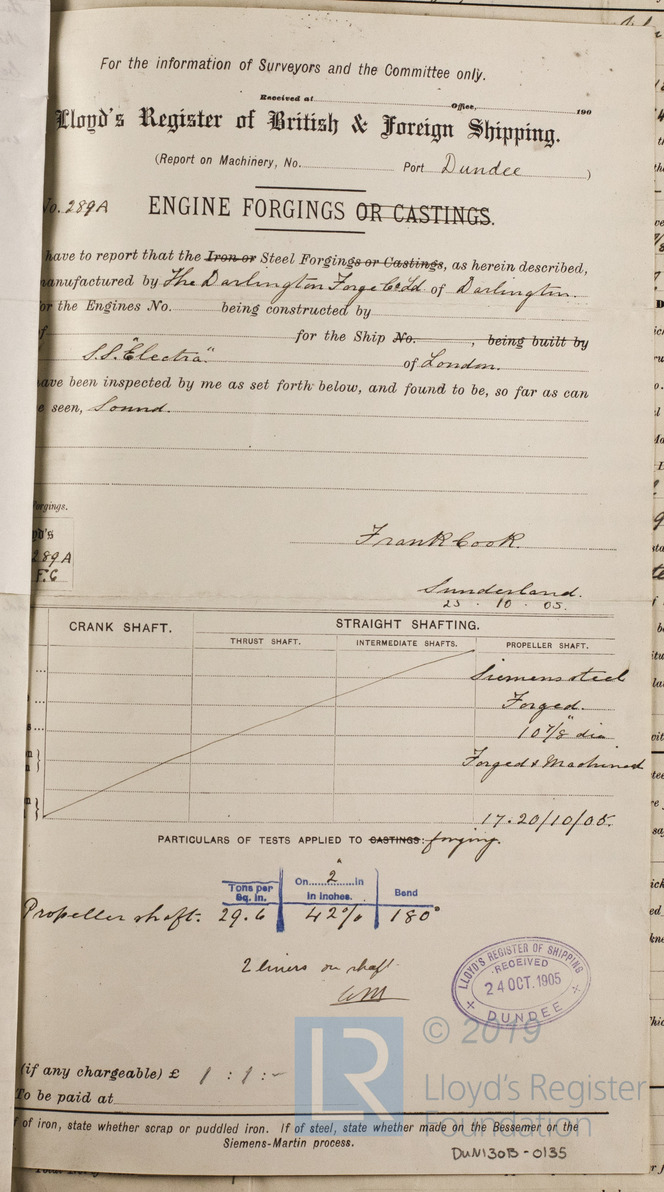 For the information of Surveyors and the Committee only.
Received at Office, 190
Lloyd's Register of British & Foreign Shipping.
(Report on Machinery, No. Port Dundee )
No. 289A ENGINE FORGINGS OR CASTINGS.
have to report that the Iron or Steel Forgings or Castings, as herein described,
manufactured by The Darlington Forge Co Ld of Darlington
for the Engines No. being constructed by
of for the Ship No. , being built by
S.S. "Electra" of London.
have been inspected by me as set forth below, and found to be, so far as can
be seen, Sound.
Forgings.
yd's
289A
F.C
Frank Cook.
Sunderland.
23 . 10 . 05.
CRANK SHAFT. STRAIGHT SHAFTING.
THRUST SHAFT. INTERMEDIATE SHAFTS. PROPELLER SHAFT.
Siemens steel
Forged.
10 7/8" dia
Forged & Machined
17.20/10/05.
PARTICULARS OF TESTS APPLIED TO CASTINGS: forging.
Tons per Sq. in. On 2" in in inches. Bend
Propeller shaft. 29.6 42% 180°
2 liners on shaft
LLOYD'S REGISTER OF SHIPPING
RECEIVED
24 OCT. 1905
DUNDEE
© 2019
LR
Lloyd's Register
Foundation
(if any chargeable) £ 1 : 1 : -
To be paid at
If of iron, state whether scrap or puddled iron. If of steel, state whether made on the Bessemer or the
Siemens-Martin process.
DUN130B-0135